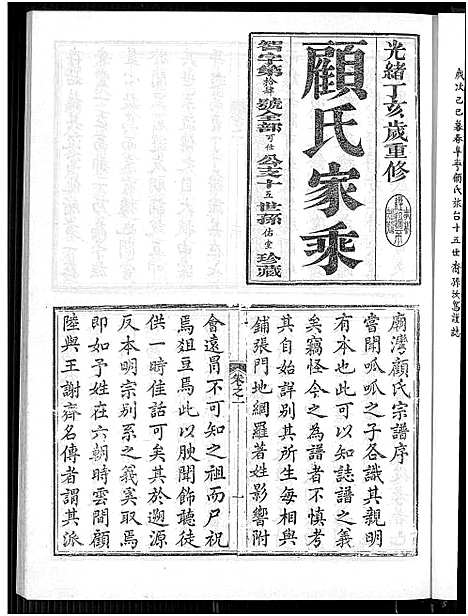 光緒丁亥歲重修
顧氏家乘
智字第拾肆號全部可仕公支十五世孫佑堂珍藏
廟灣顧氏宗譜序
嘗聞呱呱之子各識其親明
有本也此可以知誌譜之義
矣竊怪今之為譜者不慎考
其自始詳別其所生每相與
鋪張門地網羅著姓影響附
卷之一
一
會遠冐不可知之祖而尸祝
焉俎豆焉此不過腴聞飾聽徒
供一時佳話可矣其於遡源
反本明宗別系之義奚取焉
即如予姓在六朝時雲間顧
陸與王謝齊名傳者謂其派